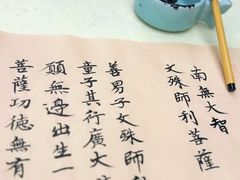 南無大智
文殊師利菩薩
善男子文殊師利
童子其行廣大
願無邊出生一
菩薩功德無有